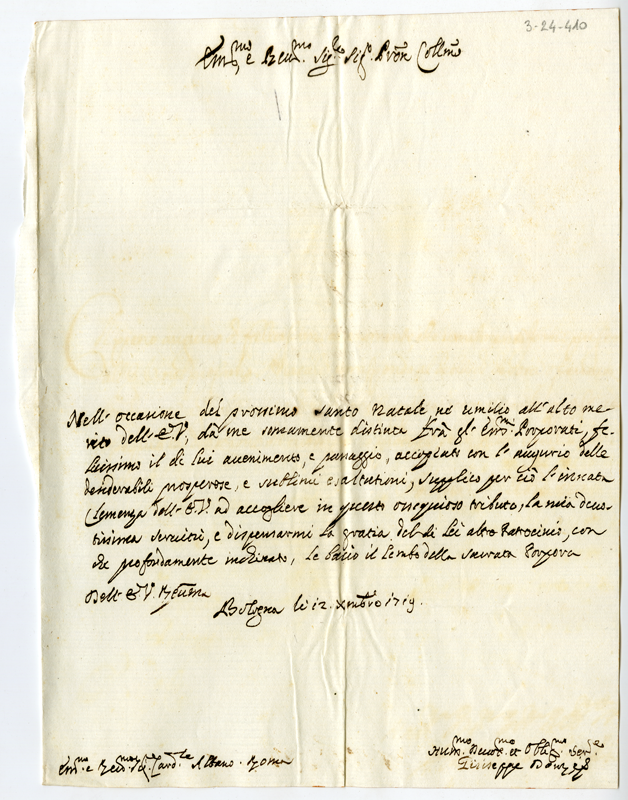 3-24-410
Em.mo e Reu.mo Sig.re Sig.e Pron Collmo
Nell' occasione del prossimo santo Natale, ne umilio all' alto me-
rito dell' E.V., da me somamente distinto frà gl' Em.mi Porporati, fe-
licissimo il di lui auenimento, e passaggio, accoppiati con l' augurio delle
desiderabili prosperose, e sublimi esaltationi, supplico per ciò l' innata
Clemenza dell' E.V. ad accogliere in questo ossequioso tributo, la mia deuo-
tissima seruitù, e dispensarmi la gratia del di Lei alto Patrocinio, con
che profondamente inchinato, le bacio il Lembo della sacrata Porpora
Dell' E.V. Reuma
Bologna li 12. Xmbro 1719.
Em.mo e Reu.mo Sig. Card.le Albano. Roma
Hum.mo Deuot.mo et Obblig.mo Ser.e
Giuseppe